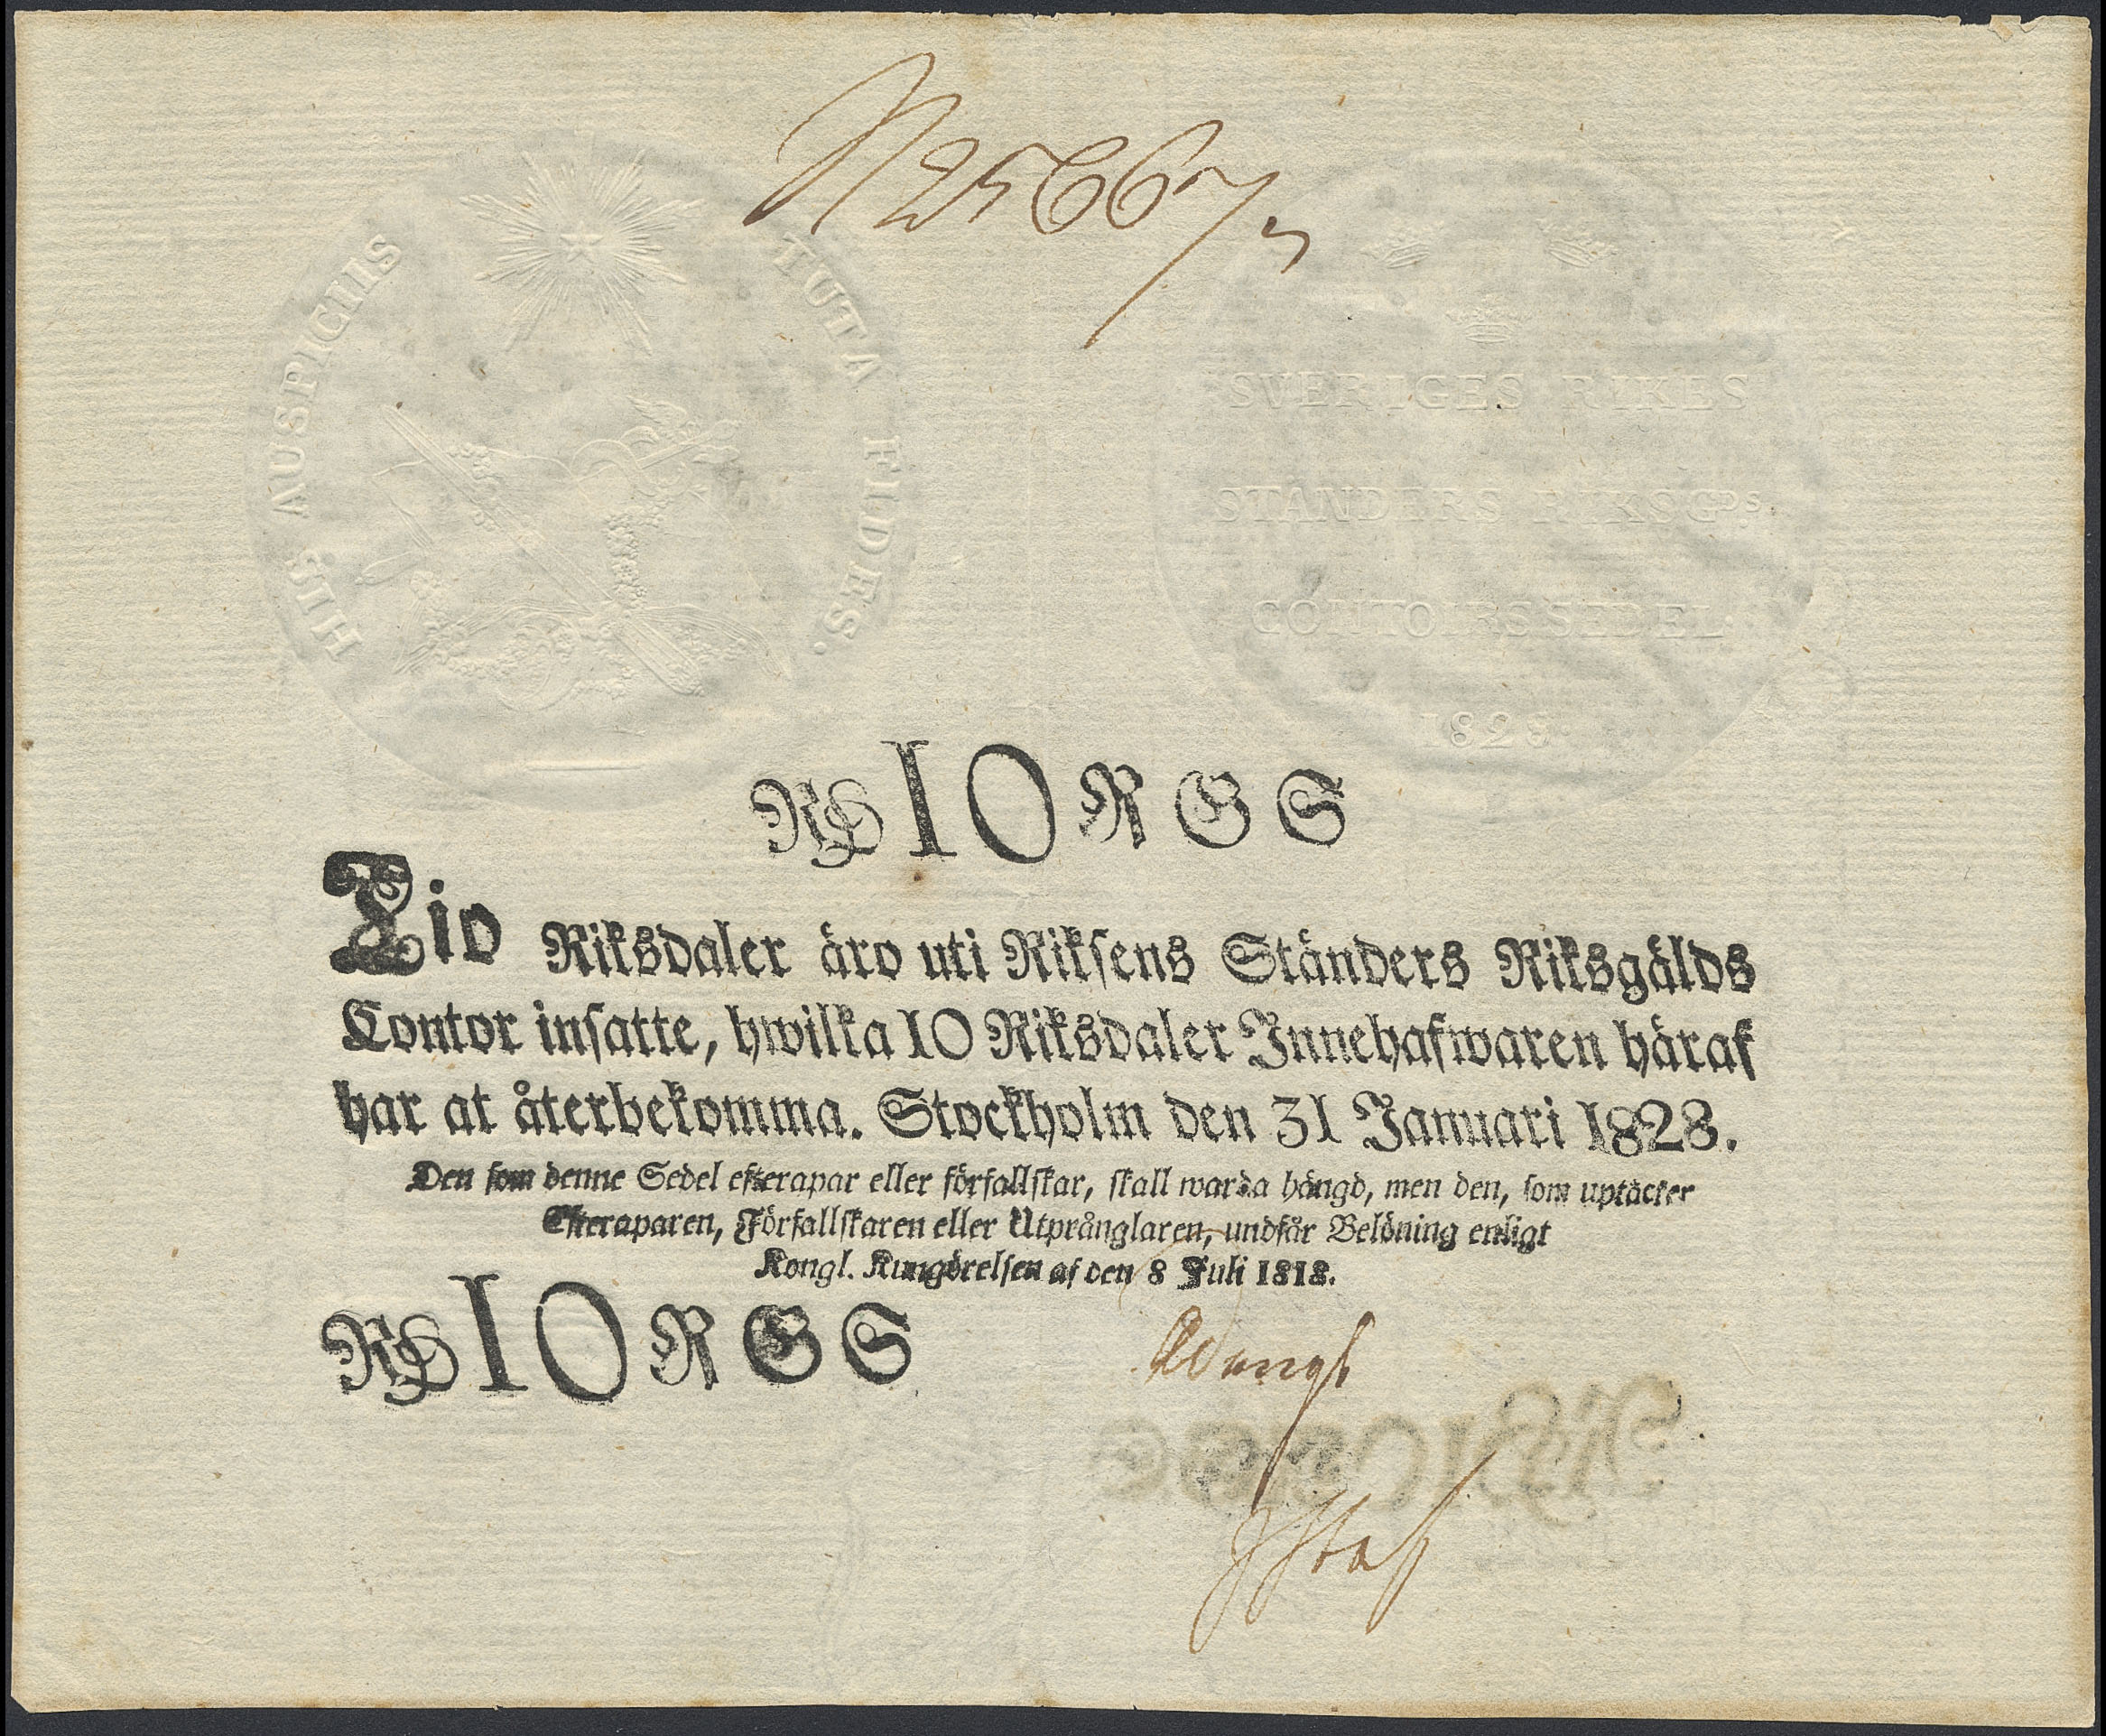 N 25667,
HIS AUSPICIIS TUTA FIDES.
SVERIGES RIKES
STANDERS RIKSGDS.
CONTOIRSSEDEL.
1828.
RD 10 R G S
Tio Riksdaler äro uti Riksens Ständers Riksgälds
Contor insatte, hwilka 10 Riksdaler Innehafwaren häraf
har at återbekomma. Stockholm den 31 Januari 1828.
Den som denne Sedel efterapar eller förfallskar, skall warda hängd, men den, som uptäcker
Efteraparen, Förfallskaren eller Utprånglaren, undfår Belöning enligt
Kongl. Kungörelsen af den 8 Juli 1818.
RD 10 R G S